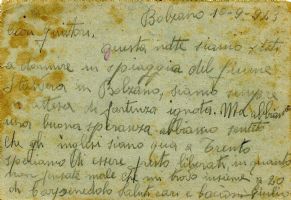 Bolzano 16-9-943
cari genitori.
questa notte siamo stati
a dormire in spiaggia del fiume
stassera in Bolzano, siamo sempre
in attesa di partenza ignota. Ma abbiamo
una buona speranza abbiamo sentito
che gli inglesi siano qua a Trento
speriamo di essere presto liberati, in quanto
non pensate male di mi trovo insieme a 20
di Carpenedolo saluti cari e bacioni